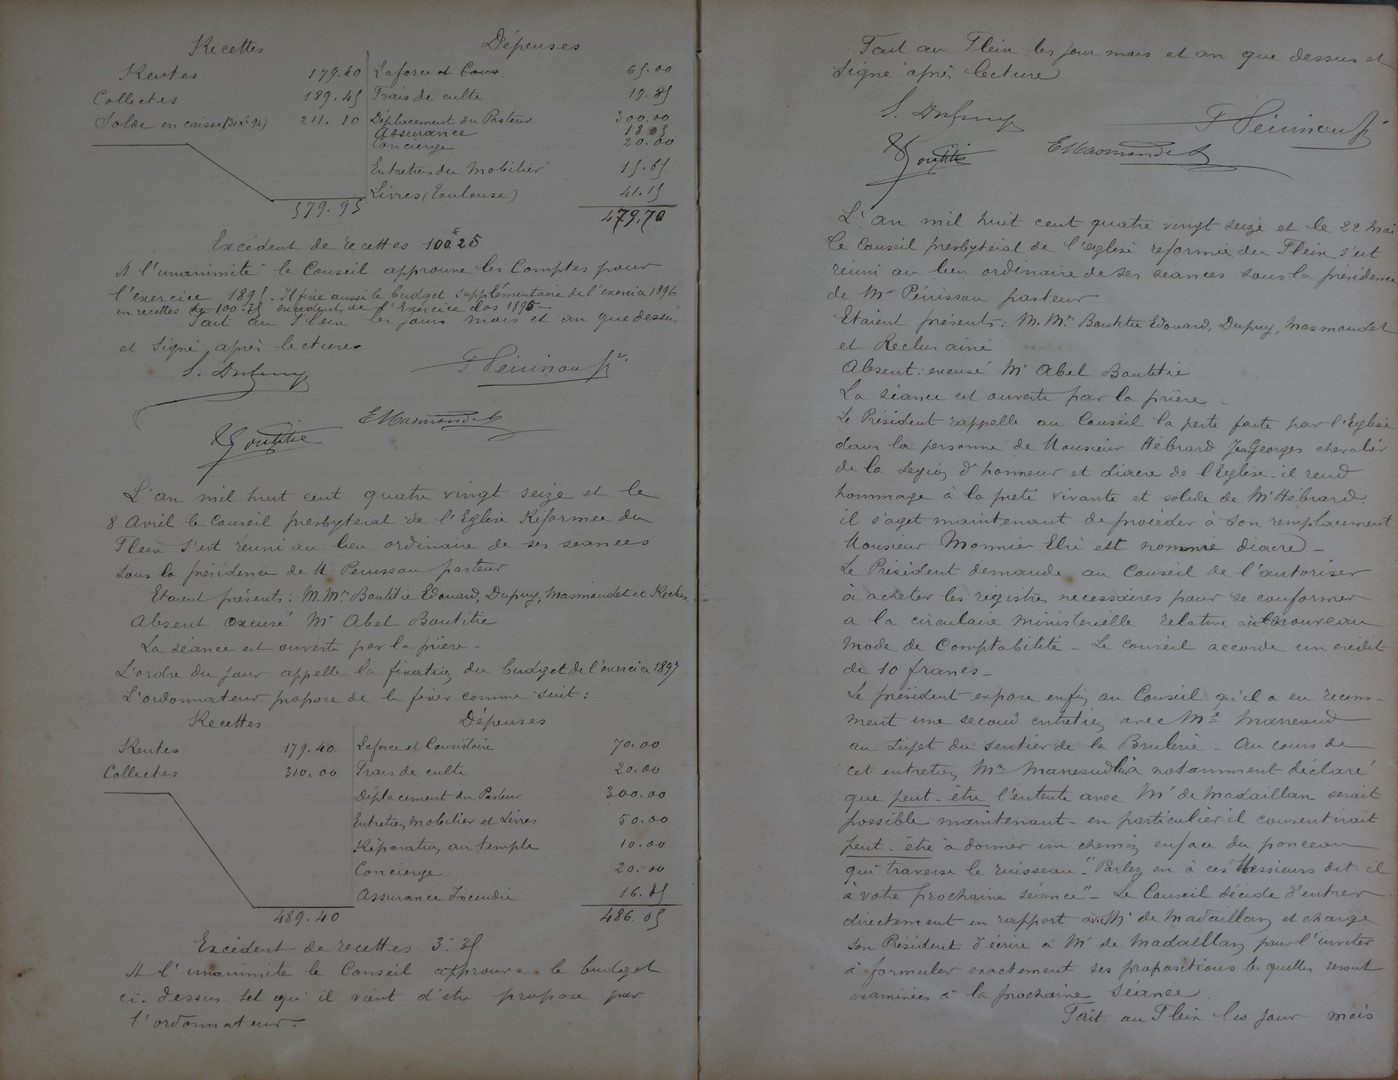 Recettes Dépenses
Rentes 179.40 Laforce et Cons. 65.00
Collectes 189.45 Frais de culte 19.85
Solde en caisse 211.10 Déplacement du Pasteur 300.00
Assurance 18.05
Concierge 20.00
Entretien du Mobilier 15.65
Livres (Toulouse) 41.15
579.95 479.70
Excédent de recettes 100f25
A l'unanimité le Conseil approuve les Comptes pour
l'exercice 1895. Il fixe aussi le budget supplémentaire de l'exercice 1896
en recettes de 100.25 excédent de l'Exercice clos 1895
Fait au Fleix les jours mois et an que dessus
et signé après lecture
S. Dupuy F Pénissou pr
E Boutitie E Masmondet
L'an mil huit cent quatre vingt seize et le
8 Avril le Conseil presbytéral de l'Eglise Réformée du
Fleix s'est réuni au lieu ordinaire de ses séances
sous la présidence de M Penissou pasteur
Etaient présents: M.Mrs Boutitie Edouard, Dupuy, Masmondet et Reclus
Absent excusé Mr Abel Boutitie
La séance est ouverte par la prière.
L'ordre du jour appelle la fixation du budget de l'exercice 1897
L'ordonnateur propose de le fixer comme suit:
Recettes Dépenses
Rentes 179.40 Laforce et Consistoire 70.00
Collectes 310.00 Frais de culte 20.00
Déplacement du Pasteur 300.00
Entretien Mobilier et Livres 50.00
Réparation au temple 10.00
Concierge 20.00
Assurance Incendie 16.05
489.40 486.05
Excédent de recettes 3f35
A l'unanimité le Conseil approuve le budget
ci-dessus tel qu'il vient d'être proposé par
l'ordonnateur.
Fait au Fleix les jour mois et an que dessus et
signé après lecture
S. Dupuy F Pénissou pr
E Boutitie E Masmondet
L'an mil huit cent quatre vingt seize et le 22 Mai
le Conseil presbytéral de l'église réformée du Fleix s'est
réuni au lieu ordinaire de ses séances sous la présidence
de Mr Pénissou pasteur
Etaient présents: M.Mrs Boutitie Edouard, Dupuy, Masmondet
et Reclus ainé
Absent: excusé Mr Abel Boutitie
La séance est ouverte par la prière.
Le Président rappelle au Conseil la perte faite par l'Eglise
dans la personne de Monsieur Hébrard Jn Georges chevalier
de la Légion d'honneur et diacre de l'Eglise. il rend
hommage à la piété vivante et solide de Mr Hébrard.
il s'agit maintenant de procéder à son remplacement
Monsieur Monnier Elie est nommé diacre
Le Président demande au Conseil de l'autoriser
à acheter les registres nécessaires pour se conformer
a la circulaire ministérielle relative au nouveau
mode de Comptabilité. Le conseil accorde un crédit
de 10 francs
Le président expose enfin au Conseil qu'il a eu récem-
ment une second entretien avec Mr
au sujet du sentier de la Brulerie. Au cours de
cet entretien Mr lui a notamment déclaré
que peut-être l'entente avec Mr de Madaillan serait
possible maintenant en particulier il consentirait
peut-être à donner un chemin en face du ponceau
qui traverse le ruisseau "Parlez en à ces Messieurs dit il
à votre prochaine séance". Le Conseil décide d'entrer
directement en rapport avec Mr de Madaillan et charge
son Président d'écrire à Mr de Madaillan pour l'inviter
à formuler exactement ses propositions lesquelles seront
examinées à la prochaine séance.
Fait au Fleix les jour mois